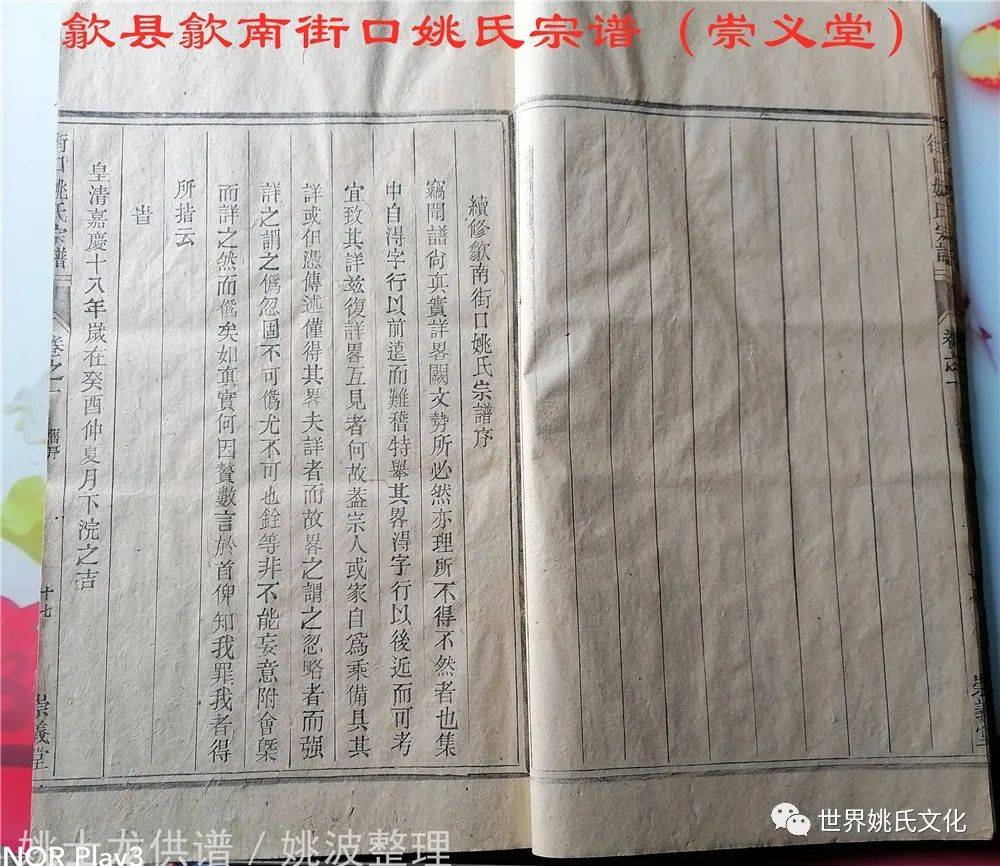 歙县歙南街口姚氏宗谱（崇义堂）
續修歙南街口姚氏宗譜序
竊聞譜尙真實詳畧闕文勢所必然亦理所不得不然者也集
中自淂字行以前遠而難稽特舉其畧淂字行以後近而可考
宜致其詳兹復詳畧互見者何故葢宗人或家自爲乘備具其
詳或但憑傳述僅得其畧夫詳者而故畧之謂之忽略者而强
詳之謂之僞忽固不可僞尤不可也銓等非不能妄意附會槩
而詳之然而僞矣如真實何因贅數言於首俾知我罪我者得
所指云
旹
皇清嘉慶十八年歲在癸酉仲夏月下浣之吉
街口姚氏宗譜
卷之一
舊序
十七
崇義堂
街口姚氏宗譜
卷之一
崇義堂
世界姚氏文化
供谱 / 姚波整理
NOR Play3